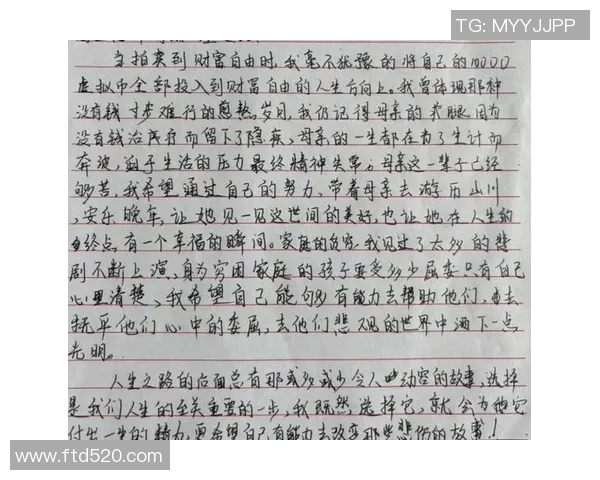 TG: MYYJJPP
当拍卖到财富自由时,我毫不犹豫的将自己的10000
虚拟币全部投入到财富自由的人生方向上。我曾体现那种
没有钱寸步难行的煎熬岁月,我仍记得母亲的
没有钱治疗而留下了隐疾,母亲的一生都在为了生计而
奔波,迫于生活的压力最终精神失常。母亲这一辈子已经
够苦,我希望通过自己的努力,带着母亲去游历山川
,安乐晚年,让她见一见这世间的美好,也让她在人生的
终点有一个幸福的瞬间。家庭的贫穷,我见过了太多的悲
剧不断上演,身为穷困家庭的孩子要受多少屈委只有自己
心里清楚,我希望自己能够有能力去帮助他们,去
抚平他们心中的委屈,去他们悲观的世界中洒下一点
光明。
人生之路的后面总有那或多或少令人动容的故事,选择
是我们人生的至关重要的一步,我既然选择它,就会为他
付出一生的精力,更希望自己有能力去改变那些悲伤的故事!
www.ftd520.com